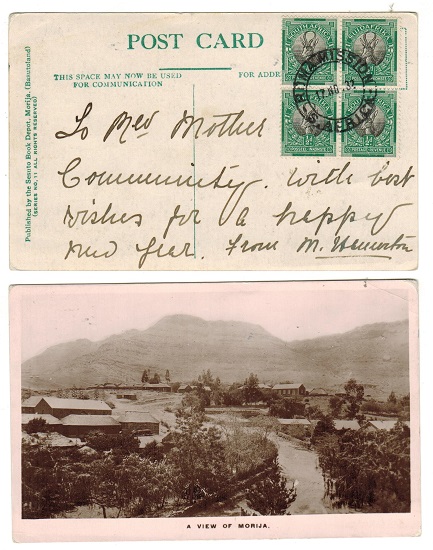 POST CARD
THIS SPACE MAY NOW BE USED
FOR COMMUNICATION
FOR ADDRE
Published by the Sesuto Book Depot, Morija. (Basutoland)
(SERIES NO. 1) ALL RIGHTS RESERVED
SOUTH AFRICA
SUIDAFRIKA
ROMA MISSION
S. AFRICA
To Rev Mother
Community. With best
wishes for a happy
new year. From M.
A VIEW OF MORIJA.